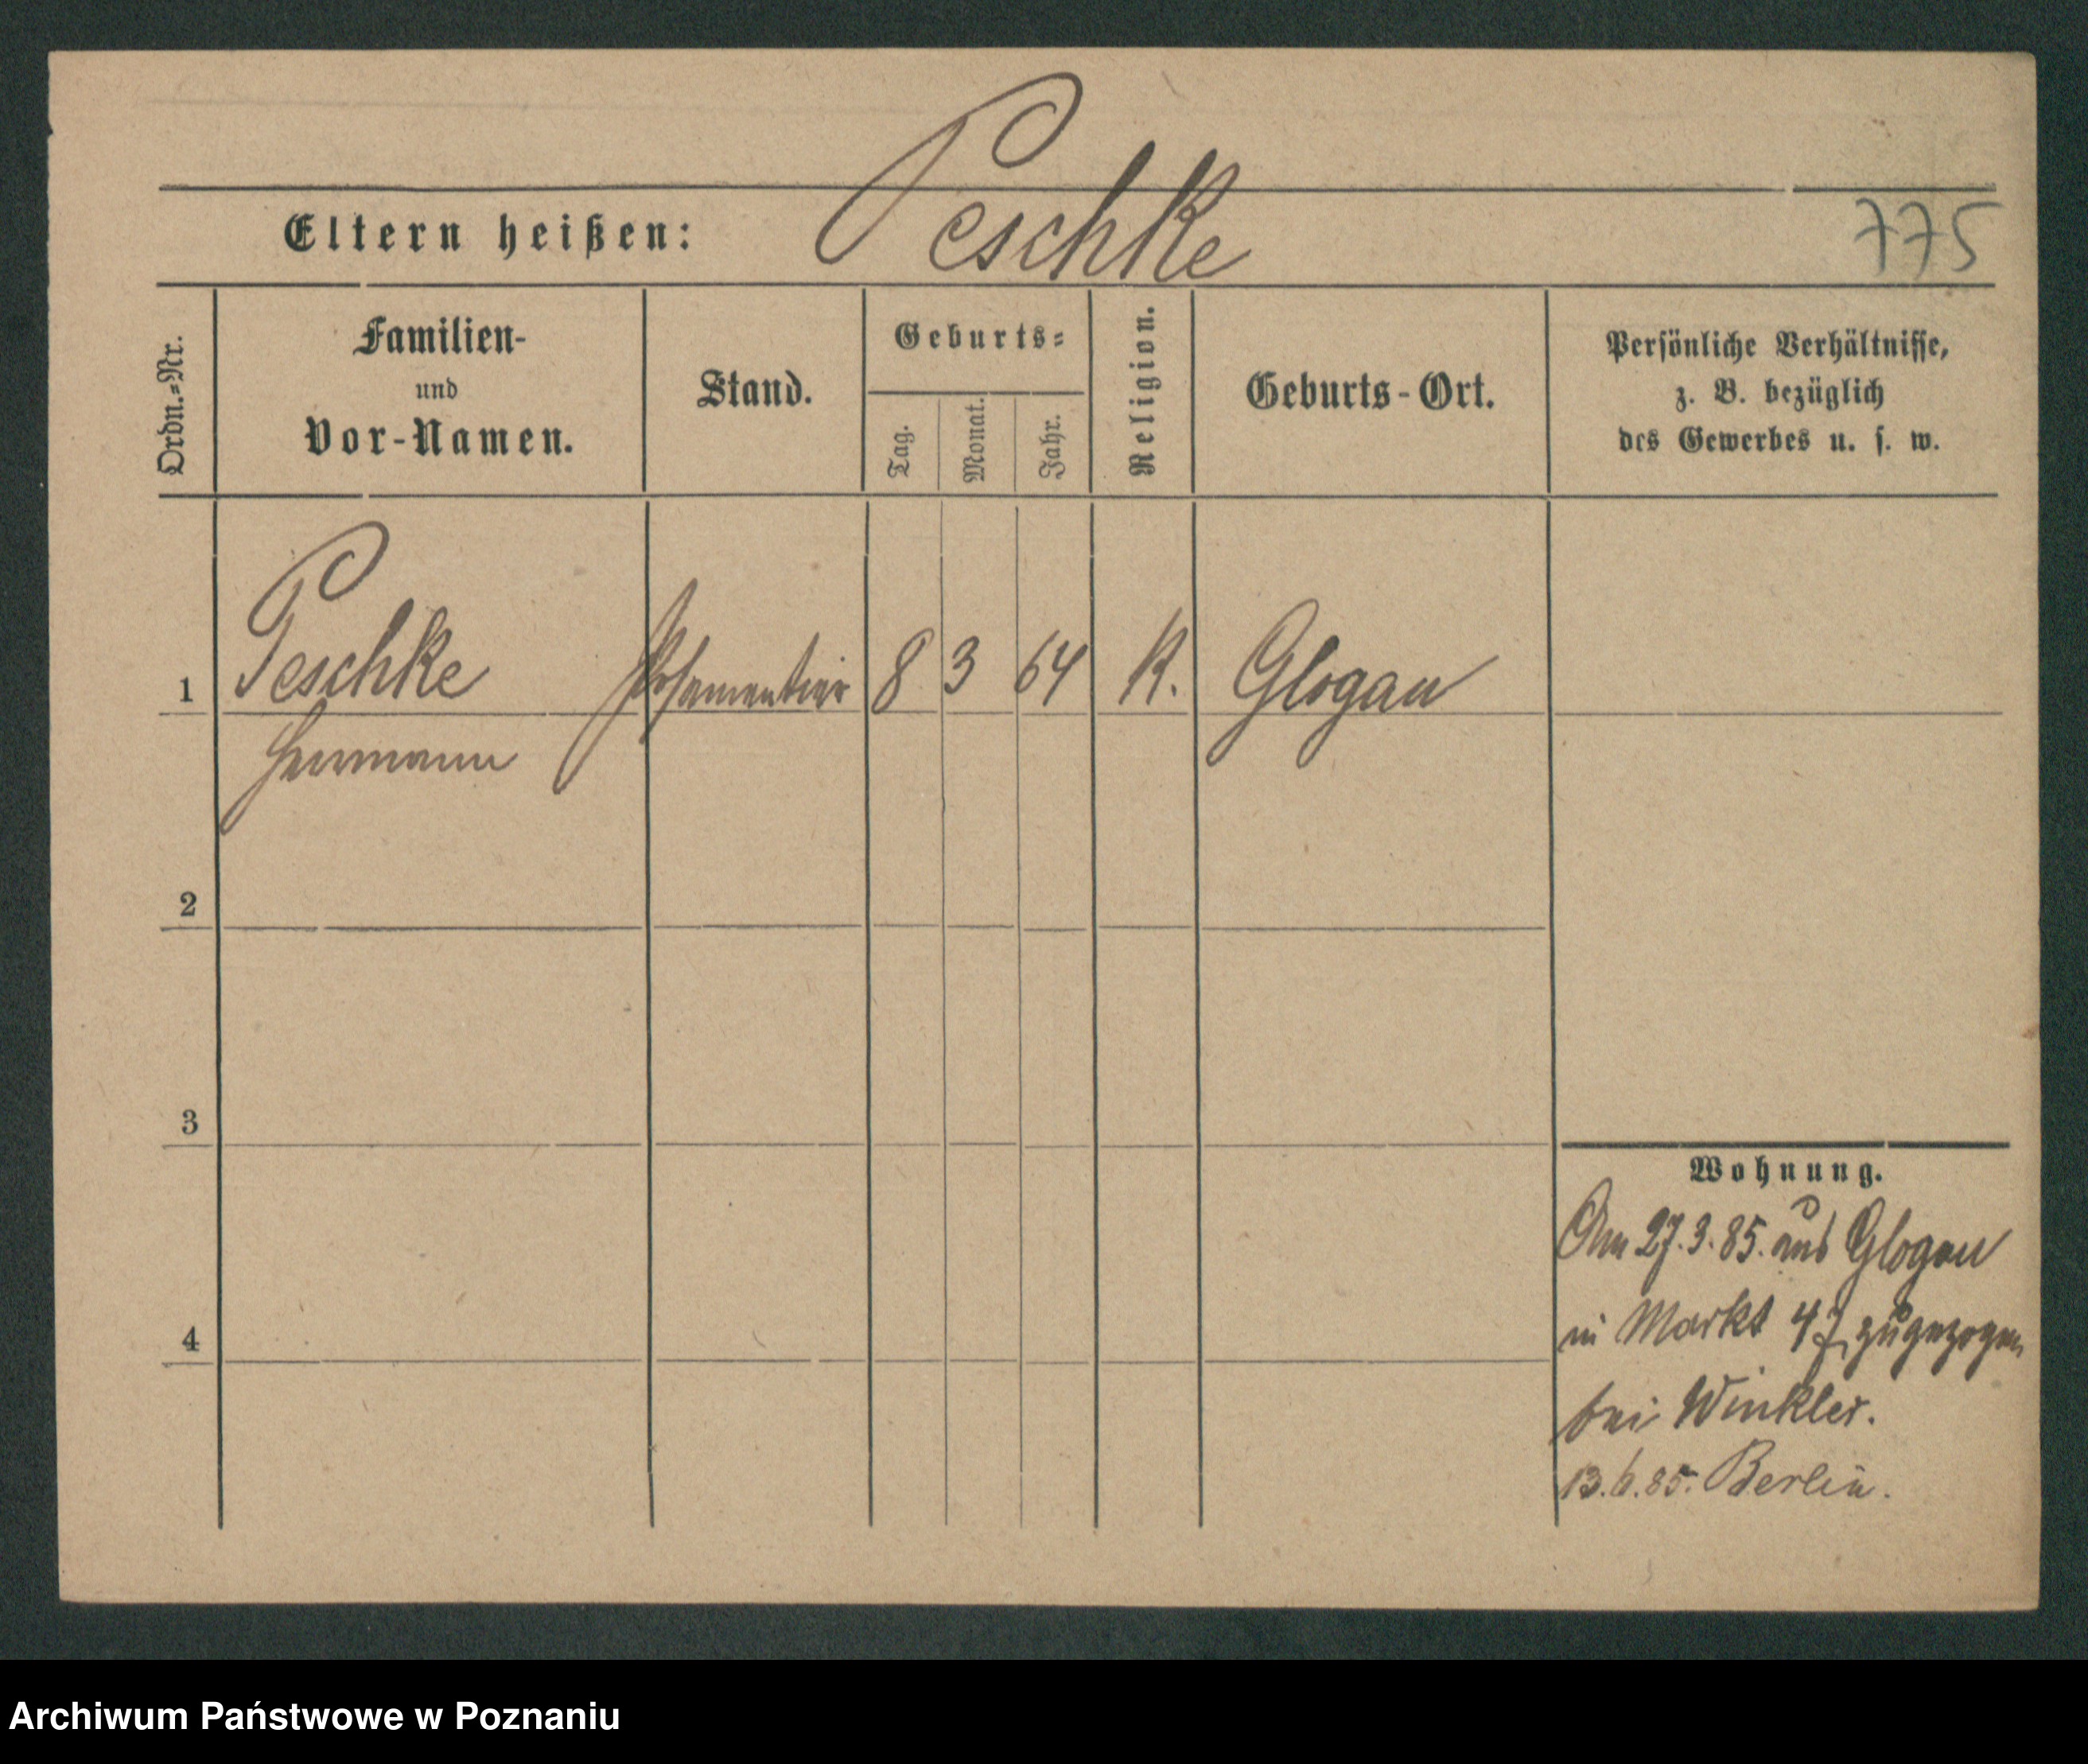 Peschke
Eltern heißen:
775
Ordn.=Nr.
Familien-
und
Vor-Namen.
Stand.
Geburts=
Tag.
Monat.
Jahr.
Religion.
Geburts-Ort.
Persönliche Verhältnisse,
z. B. bezüglich
des Gewerbes u. s. w.
1 Peschke Posamentier 8 3 64 K. Glogau
Hermann
2
3
4
Wohnung.
Am 27.3.85. aus Glogau
in Markt 47 zugezogen
bei Winkler.
13.6.85. Berlin.
Archiwum Państwowe w Poznaniu